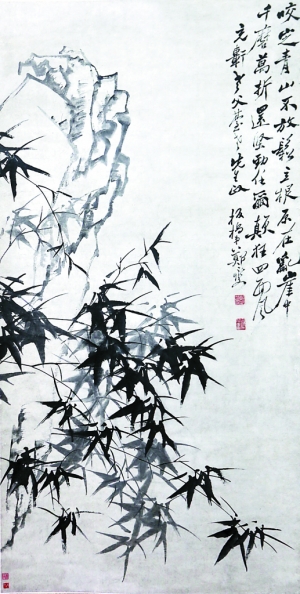 咬定青山不放鬆立根原在亂崖中
千磨萬折還堅勁任爾顛狂四面風
元老父臺先生政
板橋鄭燮